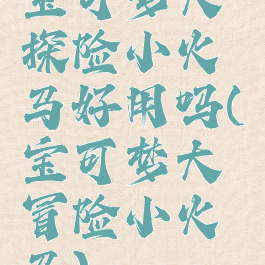 宝可梦大
探险小火
马好用吗(
宝可梦大
冒险小火
马)